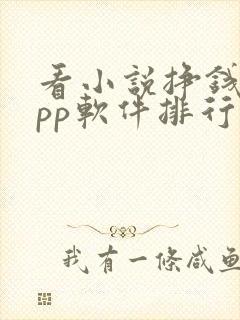 看小説挣錢
pp軟件排行
我有一條咸魚